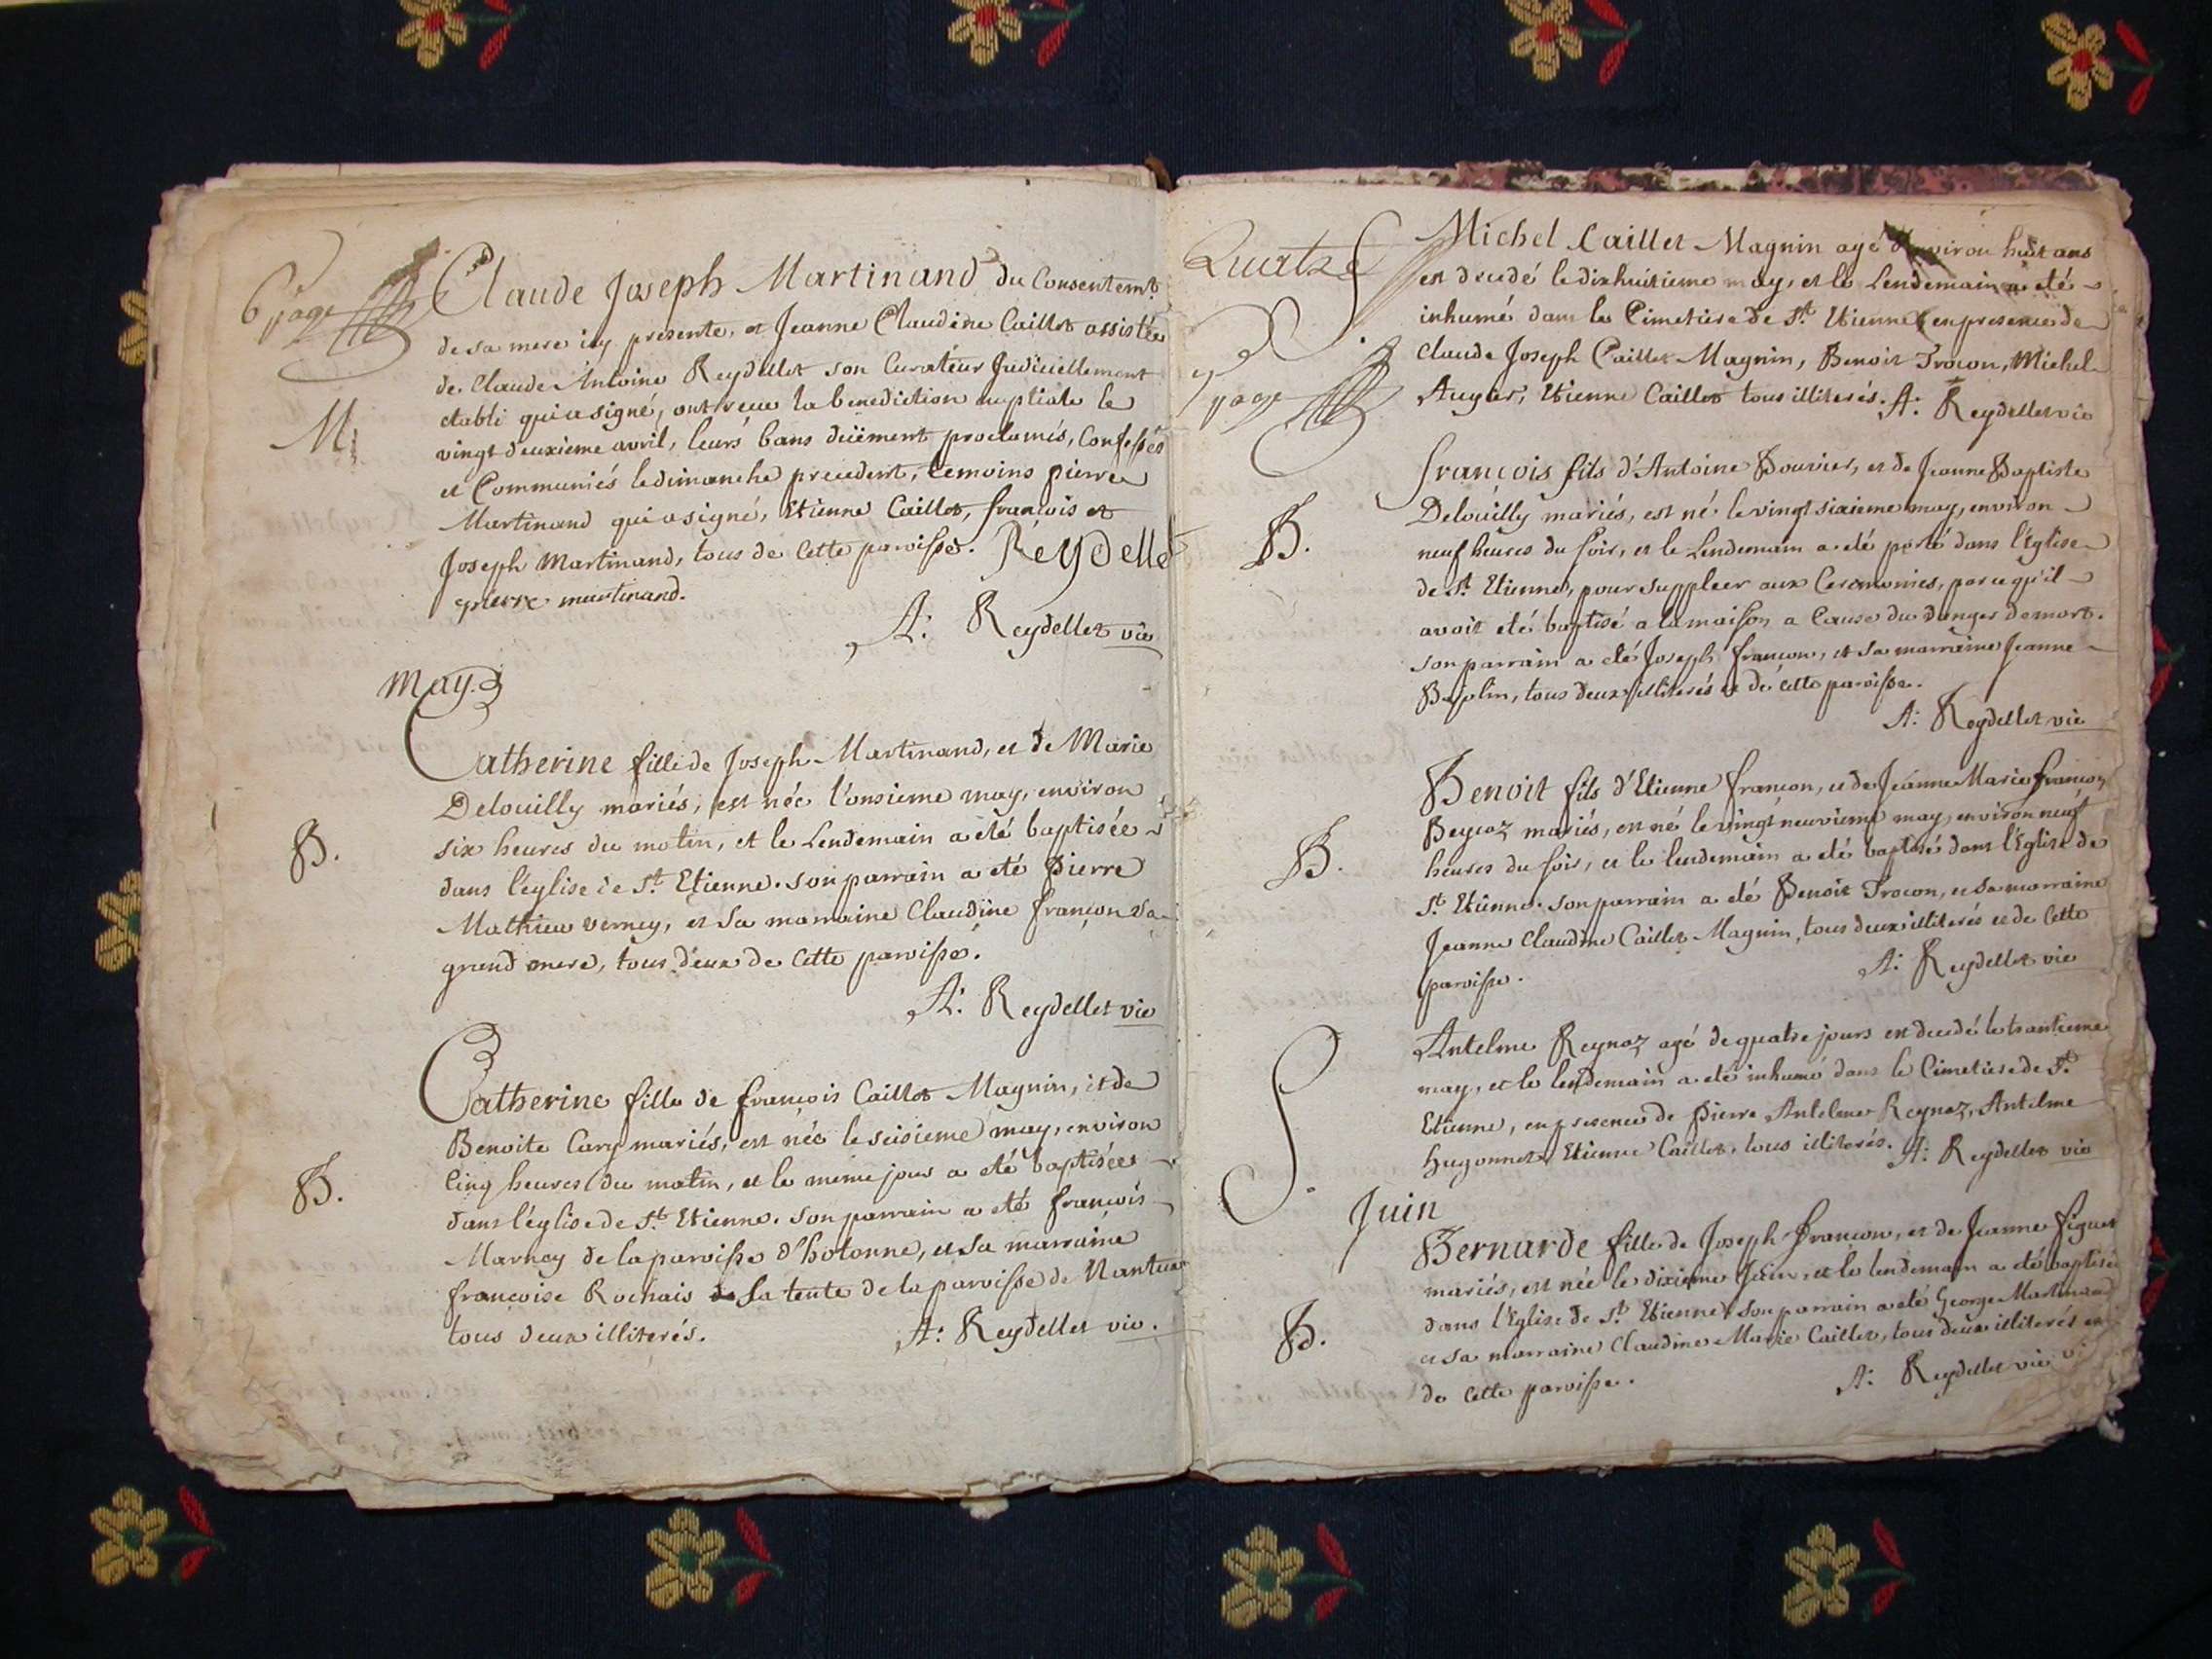 6 page
Claude Joseph Martinand du Consentemt
de sa mere icy presente, et Jeanne Claudine Caillet assistée
de Claude Antoine Reydellet son Curatéur Judiciellement
etabli qui a signé, ont recue la benediction nuptiale le
M.
vingt deuxieme avril, leurs bans düement proclamés, Confessés
et Communiés le dimanche precedent, temoins pierre
Martinand qui a signé, Etienne Caillet, françois et
Joseph Martinand, tous de Cette paroisse. Reydelle
pierre martinand.
A: Reydellet vic
May.
Catherine fille de Joseph Martinand, et de Marie
Delouilly mariés, est née l'onsieme may, environ
six heures du matin, et le Lendemain a été baptisée
B.
dans l'église de St Etienne. son parrain a eté Pierre
Mathieu Verney, et sa marraine Claudine françon sa
grand mere, tous deux de Cette paroisse.
A: Reydellet vic
Catherine fille de françois Caillet Magnin, et de
Benoite Cary mariés, est née le seisieme may, environ
Cinq heures du matin, et le meme jour a eté baptisée
B.
dans l'église de St Etienne. son parrain a eté françois
Marney de la paroisse d'hotonne, et sa marraine
françoise Rochais de la tente de la paroisse de Nantua
tous deux illiterés. A: Reydellet vic.
Quatre
S.
7 page
Michel Caillet Magnin agé d'environ huit ans
est decedé le dixhuitieme may, et le Lendemain a eté
inhumé dans le Cimetiere de St Etienne en presence de
Claude Joseph Caillet Magnin, Benoit Trocon, Michel
Augier, Etienne Caillet tous illiterés. A: Reydellet vic
françois fils d'Antoine Bouvier, et de Jeanne Baptiste
Delouilly mariés, est né le vingt sixieme may, environ
B.
neuf heures du soir, et le Lendemain a eté porté dans l'église
de St Etienne, pour suppleer aux Ceremonies, parce qu'il
avoit eté baptisé a la maison a Cause du danger de mort.
son parrain a eté Joseph françon, et sa marraine Jeanne
tous deux illiterés et de Cette paroisse.
A: Reydellet vic
Benoit fils d'Etienne françon, et de Jeanne Marie françon
mariés, est né le vingt neuvieme may, environ neuf
B.
heures du soir, et le lendemain a eté baptisé dans l'Eglise de
St Etienne. son parrain a eté Benoit Trocon, et sa marraine
Jeanne Claudine Caillet Magnin, tous deux illiterés et de Cette
paroisse. A: Reydellet vic
S.
Antelme Reynoz agé de quatre jours est decedé le trantieme
may, et le lendemain a eté inhumé dans le Cimetiere de St
Etienne, en presence de Pierre Antelme Reynoz, Antelme
hugonnet, Etienne Caillet, tous illiterés. A: Reydellet vic
Juin
Bernarde fille de Joseph françon, et de Jeanne figuet
mariés, est née le dixieme Juin, et le lendemain a eté baptisée
B.
dans l'Eglise de St Etienne. son parrain a eté George Martinand
et sa marraine Claudine Marie Caillet, tous deux illiterés et
de Cette paroisse. A: Reydellet vic